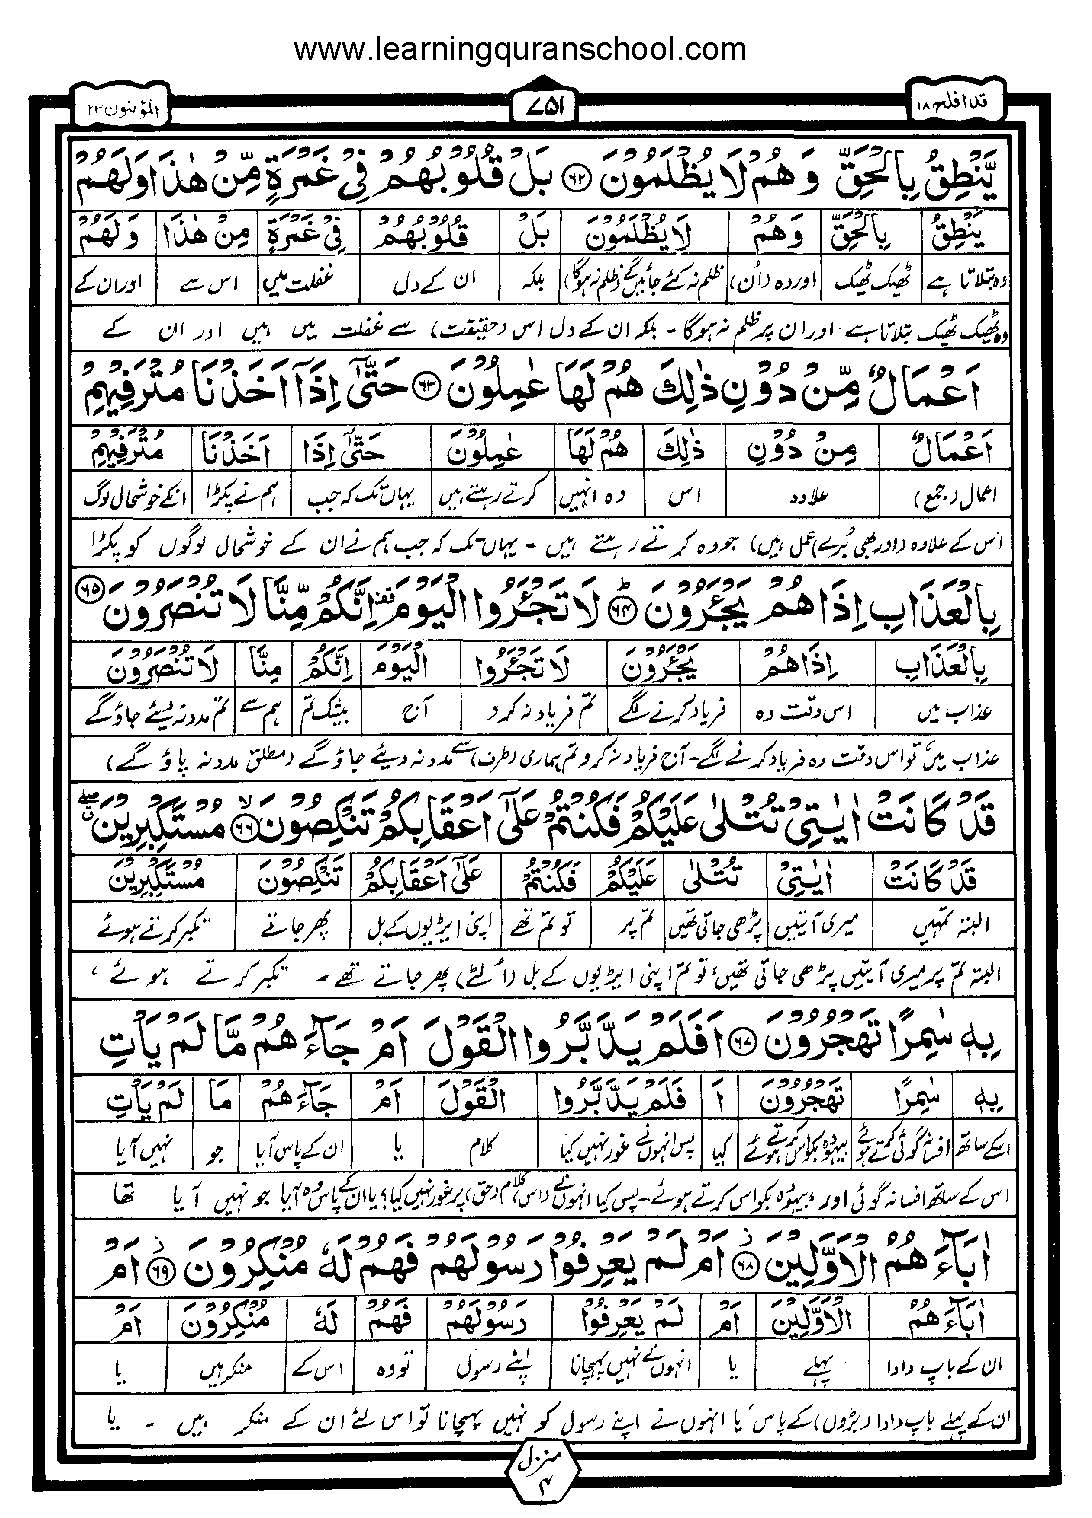 www.learningquranschool.com
قد افلح ۱۸
۷۵۱
المؤمنون ۲۳
يَّنْطِقُ بِالْحَقِّ وَهُمْ لَا يُظْلَمُوْنَ ۶۲ بَلْ قُلُوْبُهُمْ فِيْ غَمْرَةٍ مِّنْ هٰذَا وَلَهُمْ
يَنْطِقُ بِالْحَقِّ وَهُمْ لَا يُظْلَمُوْنَ بَلْ قُلُوْبُهُمْ فِيْ غَمْرَةٍ مِنْ هٰذَا وَلَهُمْ
وہ بتلاتا ہے ٹھیک ٹھیک اور وہ (ان) ظلم نہ کئے جائیں گے (ظلم نہ ہوگا) بلکہ ان کے دل غفلت میں اس سے اور ان کے
وہ ٹھیک ٹھیک بتلاتا ہے اور ان پر ظلم نہ ہوگا - بلکہ ان کے دل اس (حقیقت) سے غفلت میں ہیں اور ان کے
اَعْمَالٌ مِّنْ دُوْنِ ذٰلِكَ هُمْ لَهَا عٰمِلُوْنَ ۶۳ حَتّٰۤى اِذَاۤ اَخَذْنَا مُتْرَفِيْهِمْ
اَعْمَالٌ مِنْ دُوْنِ ذٰلِكَ هُمْ لَهَا عٰمِلُوْنَ حَتّٰۤى اِذَا اَخَذْنَا مُتْرَفِيْهِمْ
اعمال (جمع) علاوہ اس وہ انہیں کرتے رہتے ہیں یہاں تک کہ جب ہم نے پکڑا انکے خوشحال لوگ
اس کے علاوہ (اور بھی بُرے) عمل (ہیں) جو وہ کرتے رہتے ہیں - یہاں تک کہ جب ہم نے ان کے خوشحال لوگوں کو پکڑا
بِالْعَذَابِ اِذَا هُمْ يَجْـَٔرُوْنَ ۶۴ لَا تَجْـَٔرُوا الْيَوْمَ اِنَّكُمْ مِّنَّا لَا تُنْصَرُوْنَ ۶۵
بِالْعَذَابِ اِذَا هُمْ يَجْـَٔرُوْنَ لَا تَجْـَٔرُوا الْيَوْمَ اِنَّكُمْ مِنَّا لَا تُنْصَرُوْنَ
عذاب میں اس وقت وہ فریاد کرنے لگے تم فریاد نہ کرو آج بیشک تم ہم سے تم مدد نہ دیئے جاؤگے
عذاب میں تو اس وقت وہ فریاد کرنے لگے - آج فریاد نہ کرو تم ہماری (طرف) سے مدد نہ دیئے جاؤ گے (مطلق مدد نہ پاؤ گے)
قَدْ كَانَتْ اٰيٰتِيْ تُتْلٰى عَلَيْكُمْ فَكُنْتُمْ عَلٰۤى اَعْقَابِكُمْ تَنْكِصُوْنَ ۶۶ مُسْتَكْبِرِيْنَ
قَدْ كَانَتْ اٰيٰتِيْ تُتْلٰى عَلَيْكُمْ فَكُنْتُمْ عَلٰۤى اَعْقَابِكُمْ تَنْكِصُوْنَ مُسْتَكْبِرِيْنَ
البتہ تمہیں میری آیتیں پڑھی جاتی تھیں تم پر تو تم تھے اپنی ایڑیوں کے بل پھر جاتے تکبر کرتے ہوئے
البتہ تم پر میری آیتیں پڑھی جاتی تھیں، تو تم اپنی ایڑیوں کے بل (اُلٹے) پھر جاتے تھے - تکبر کرتے ہوئے،
بِهٖ سٰمِرًا تَهْجُرُوْنَ ۶۷ اَفَلَمْ يَدَّبَّرُوا الْقَوْلَ اَمْ جَآءَهُمْ مَّا لَمْ يَاْتِ
بِهٖ سٰمِرًا تَهْجُرُوْنَ اَ فَلَمْ يَدَّبَّرُوا الْقَوْلَ اَمْ جَآءَهُمْ مَا لَمْ يَاْتِ
اسکے ساتھ افسانہ گوئی کرتے ہوئے بیہودہ بکواس کرتے ہوئے کیا پس انہوں نے غور نہیں کیا کلام یا ان کے پاس آیا جو نہیں آیا
اس کے ساتھ افسانہ گوئی اور بیہودہ بکواس کرتے ہوئے - پس کیا انہوں نے (اس) کلام (حق) پر غور نہیں کیا؟ یا ان کے پاس وہ آیا جو نہیں آیا تھا
اٰبَآءَهُمُ الْاَوَّلِيْنَ ۶۸ اَمْ لَمْ يَعْرِفُوْا رَسُوْلَهُمْ فَهُمْ لَهٗ مُنْكِرُوْنَ ۶۹ اَمْ
اٰبَآءَهُمُ الْاَوَّلِيْنَ اَمْ لَمْ يَعْرِفُوْا رَسُوْلَهُمْ فَهُمْ لَهٗ مُنْكِرُوْنَ اَمْ
ان کے باپ دادا پہلے یا انہوں نے نہیں پہچانا اپنے رسول تو وہ اس کے منکر ہیں یا
ان کے پہلے باپ دادا (بڑوں) کے پاس یا انہوں نے اپنے رسول کو نہیں پہچانا تو اس لئے ان کے منکر ہیں - یا
منزل ۴